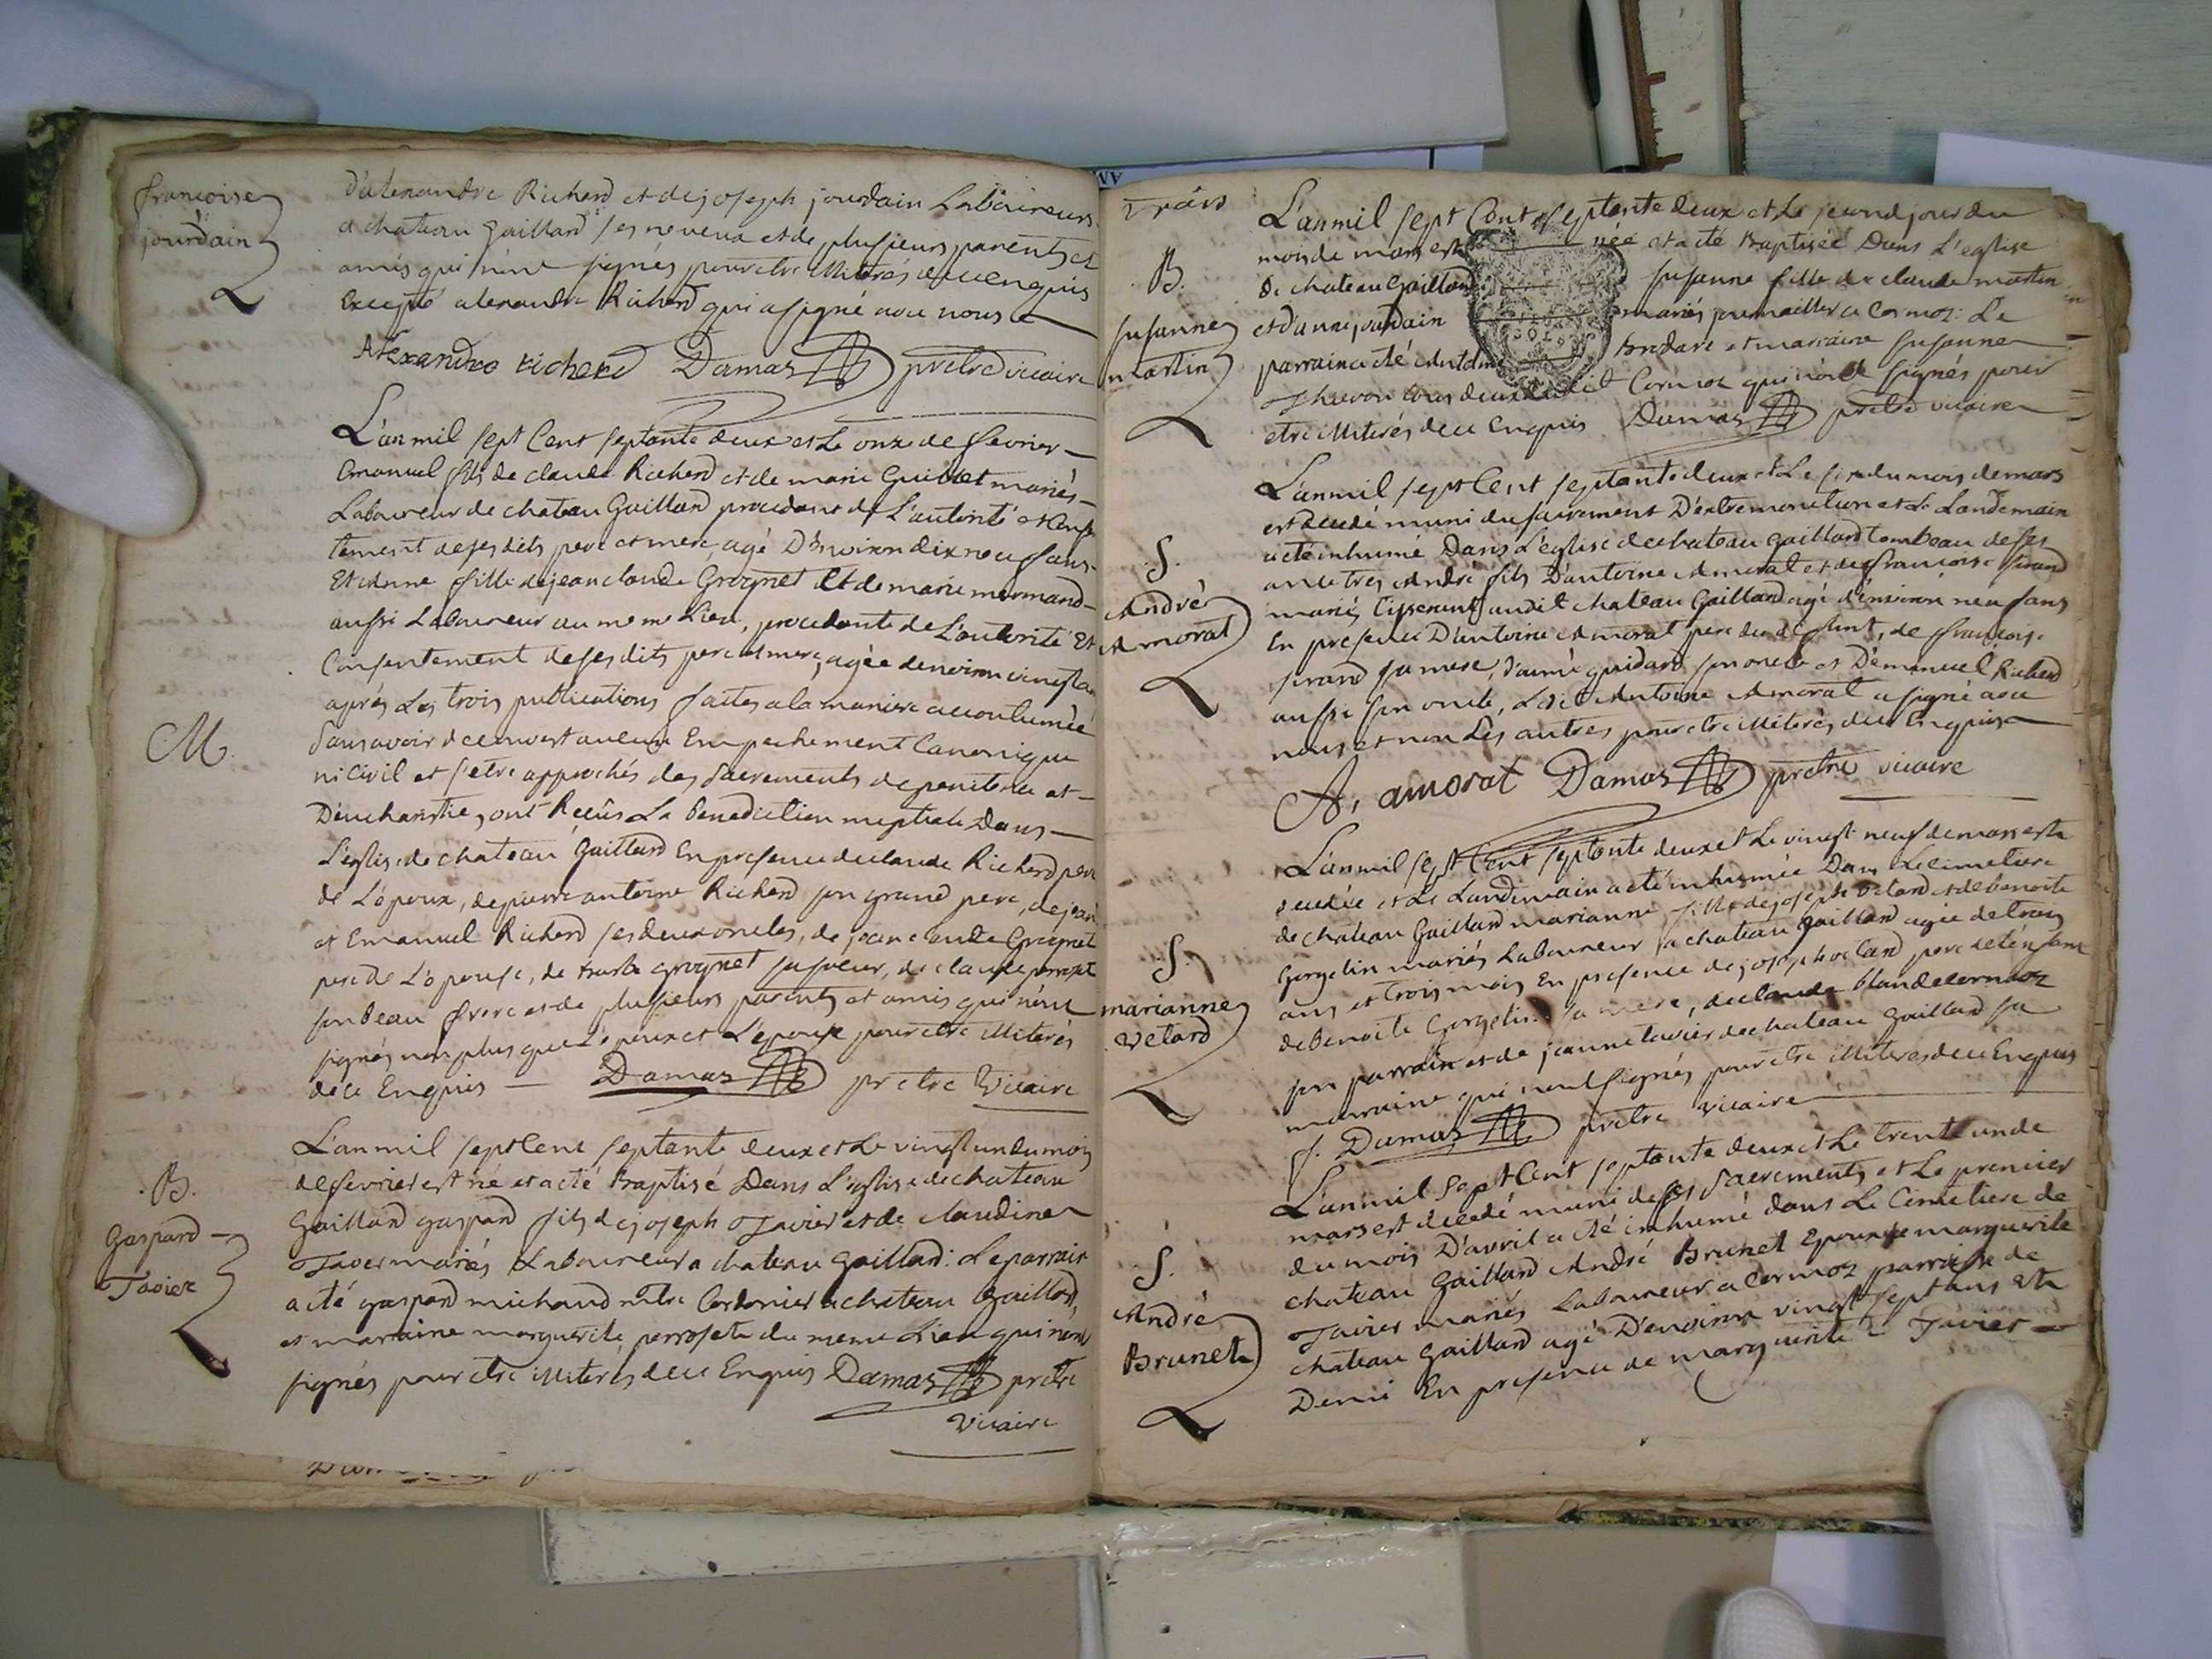 françoise
jourdain
d'alexandre Richerd et de joseph jourdain Laboureurs
a chateau Gaillard ses neveux et de plusieurs parents et
amis qui n'ont signés pour etre illiterés de ce enquis
Excepté alexandre Richerd qui a signé avec nous
Alexandre richerd Damas prêtre vicaire
M.
L'an mil sept Cent septante deux et Le onze de fevrier
Emanuel fils de claude Richerd et de marie Guillet mariés
Laboureur de chateau Gaillard procedant de L'autorité et consen
tement de ses dits pere et mere, agé D'environ dix neuf ans
Et fille de jean claude Grognet Et de marie mermand
aussi Laboureur au meme Lieu, procedante de L'autorité Et
Consentement de ses dits pere et mere, agée denviron vingt ans
aprés Les trois publications faites a la maniere accoutumée
sans avoir decouvert aucun Empechement Canonique
ni Civil et s'etre approchés des Sacrements de penitence et
D'eucharistie, ont Reçûs La Benediction nuptiale Dans
L'eglise de chateau Gaillard En presence de claude Richerd pere
de L'époux, de pierre antoine Richerd son grand pere, de jean
et Emanuel Richerd ses deux oncles, de jean claude Grognet
pere de L'epouse, de grognet sa soeur, de claude
son beau frere et de plusieurs parents et amis qui n'ont
signés non plus que L'epoux et L'epouse pour etre illiterés
de ce Enquis Damas prêtre Vicaire
B.
Gaspard
Tavier
L'an mil sept Cent septante deux et Le vingt un du mois
de fevrier est né et a été Baptisé Dans L'eglise de chateau
Gaillard gaspard fils de joseph Tavier et de claudine
Taver mariés Laboureur a chateau Gaillard. Le parrain
a été gaspard michaud mtre Cordonier a chateau Gaillard,
et marraine marguerite perroset du meme Lieu qui n'ont
signés pour etre illiterés de ce Enquis Damas prêtre
Vicaire
Trois
B.
susanne
martin
L'an mil sept Cent septante deux et Le jour du
mois de mars est née et a été Baptisée Dans L'eglise
de chateau Gaillard susanne fille de claude martin
et d'anne jourdain mariés journailler a Cormoz. Le
parrain a été et marraine susanne
Thevon tous deux dudit Cormoz qui n'ont signés pour
etre illiterés de ce Enquis Damas prêtre vicaire
S.
André
Amorat
L'an mil sept Cent septante deux et Le six du mois de mars
est decedé muni du sacrement D'extremonction et Le Landemain
a été inhumé Dans L'eglise de chateau Gaillard tombeau de ses
ancetres André fils D'antoine Amorat et de françoise sirand
mariés Tisserant audit chateau Gaillard agé d'environ neuf ans
En presence D'antoine Amorat pere du defunt, de françoise
sirand sa mere, d'aimé guidard son oncle et D'emanuel Richerd
aussi son oncle, Ledit Antoine Amorat a signé avec
nous et non Les autres pour etre illiterés de ce Enquis
A, amorat Damas prêtre vicaire
S.
marianne
Velard
L'an mil sept Cent septante deux et Le vingt neuf de mars est
decedée et Le Landemain a été inhumée Dans Le cimetiere
de chateau Gaillard marianne fille de joseph Velard et de benoite
Gorgelin mariés Laboureur a chateau Gaillard agée de trois
ans et trois mois En presence de joseph velard pere de l'enfant
de Benoite Gorgelin sa mere, de claude blan de cormoz
son parrain et de jeanne tavier de chateau Gaillard sa
marraine qui n'ont signés pour etre illiterés de ce Enquis
Damas prêtre vicaire
S.
André
Brunet
L'an mil Sept Cent septante deux et Le trente un de
mars est decedé muni de ses Sacrements et Le premier
du mois D'avril a été inhumé dans Le Cimetiere de
chateau Gaillard André Brunet Epoux de marguerite
Tavier mariés Laboureur a Cormoz parroisse de
chateau Gaillard agé D'environ vingt sept ans et
Demi En presence de marguerite Tavier